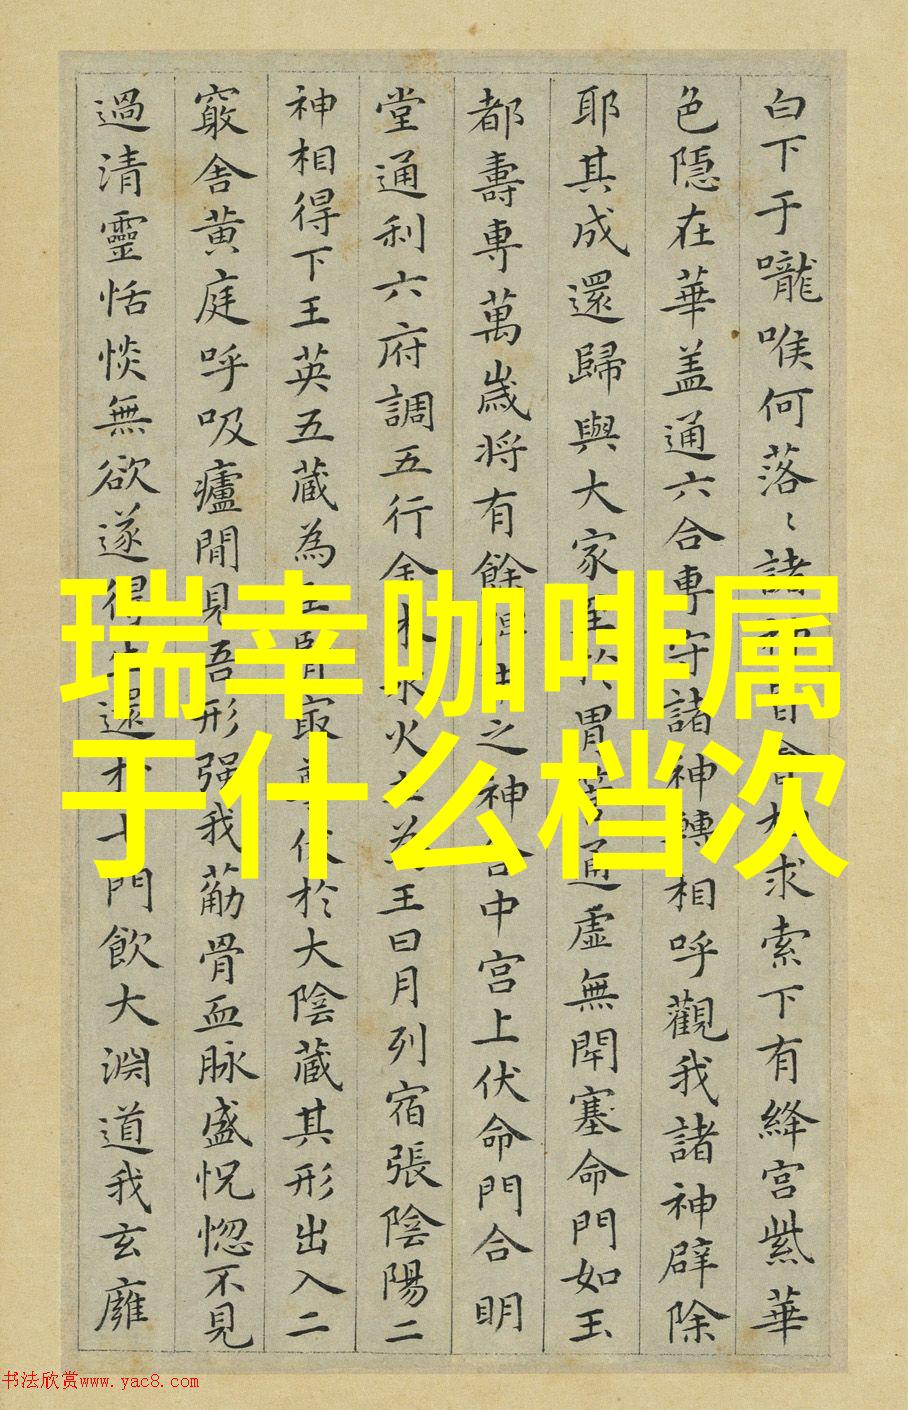 白下于嚨喉何落々諸神皆會相求索下有絳宫紫華
色隱在華盖通六合專守諸神轉相呼觀我諸神辟除
耶其成還歸與大家至於胃管通虛無閉塞命門如玉
都壽專萬歲將有餘脾中之神舍中宫上伏命門合明
堂通利六府調五行金木水火土為王日月列宿張陰陽二
神相得下王英五藏為主腎寂尊伏於大陰藏其形出入二
竅舍黄庭呼吸廬間見吾形强我荕骨血脉盛怳惚不見
過清靈恬惔無欲遂得生還於七門飲大渊道我玄廱
瑞幸咖啡属
于什么档次
书法欣赏www.yac8.com